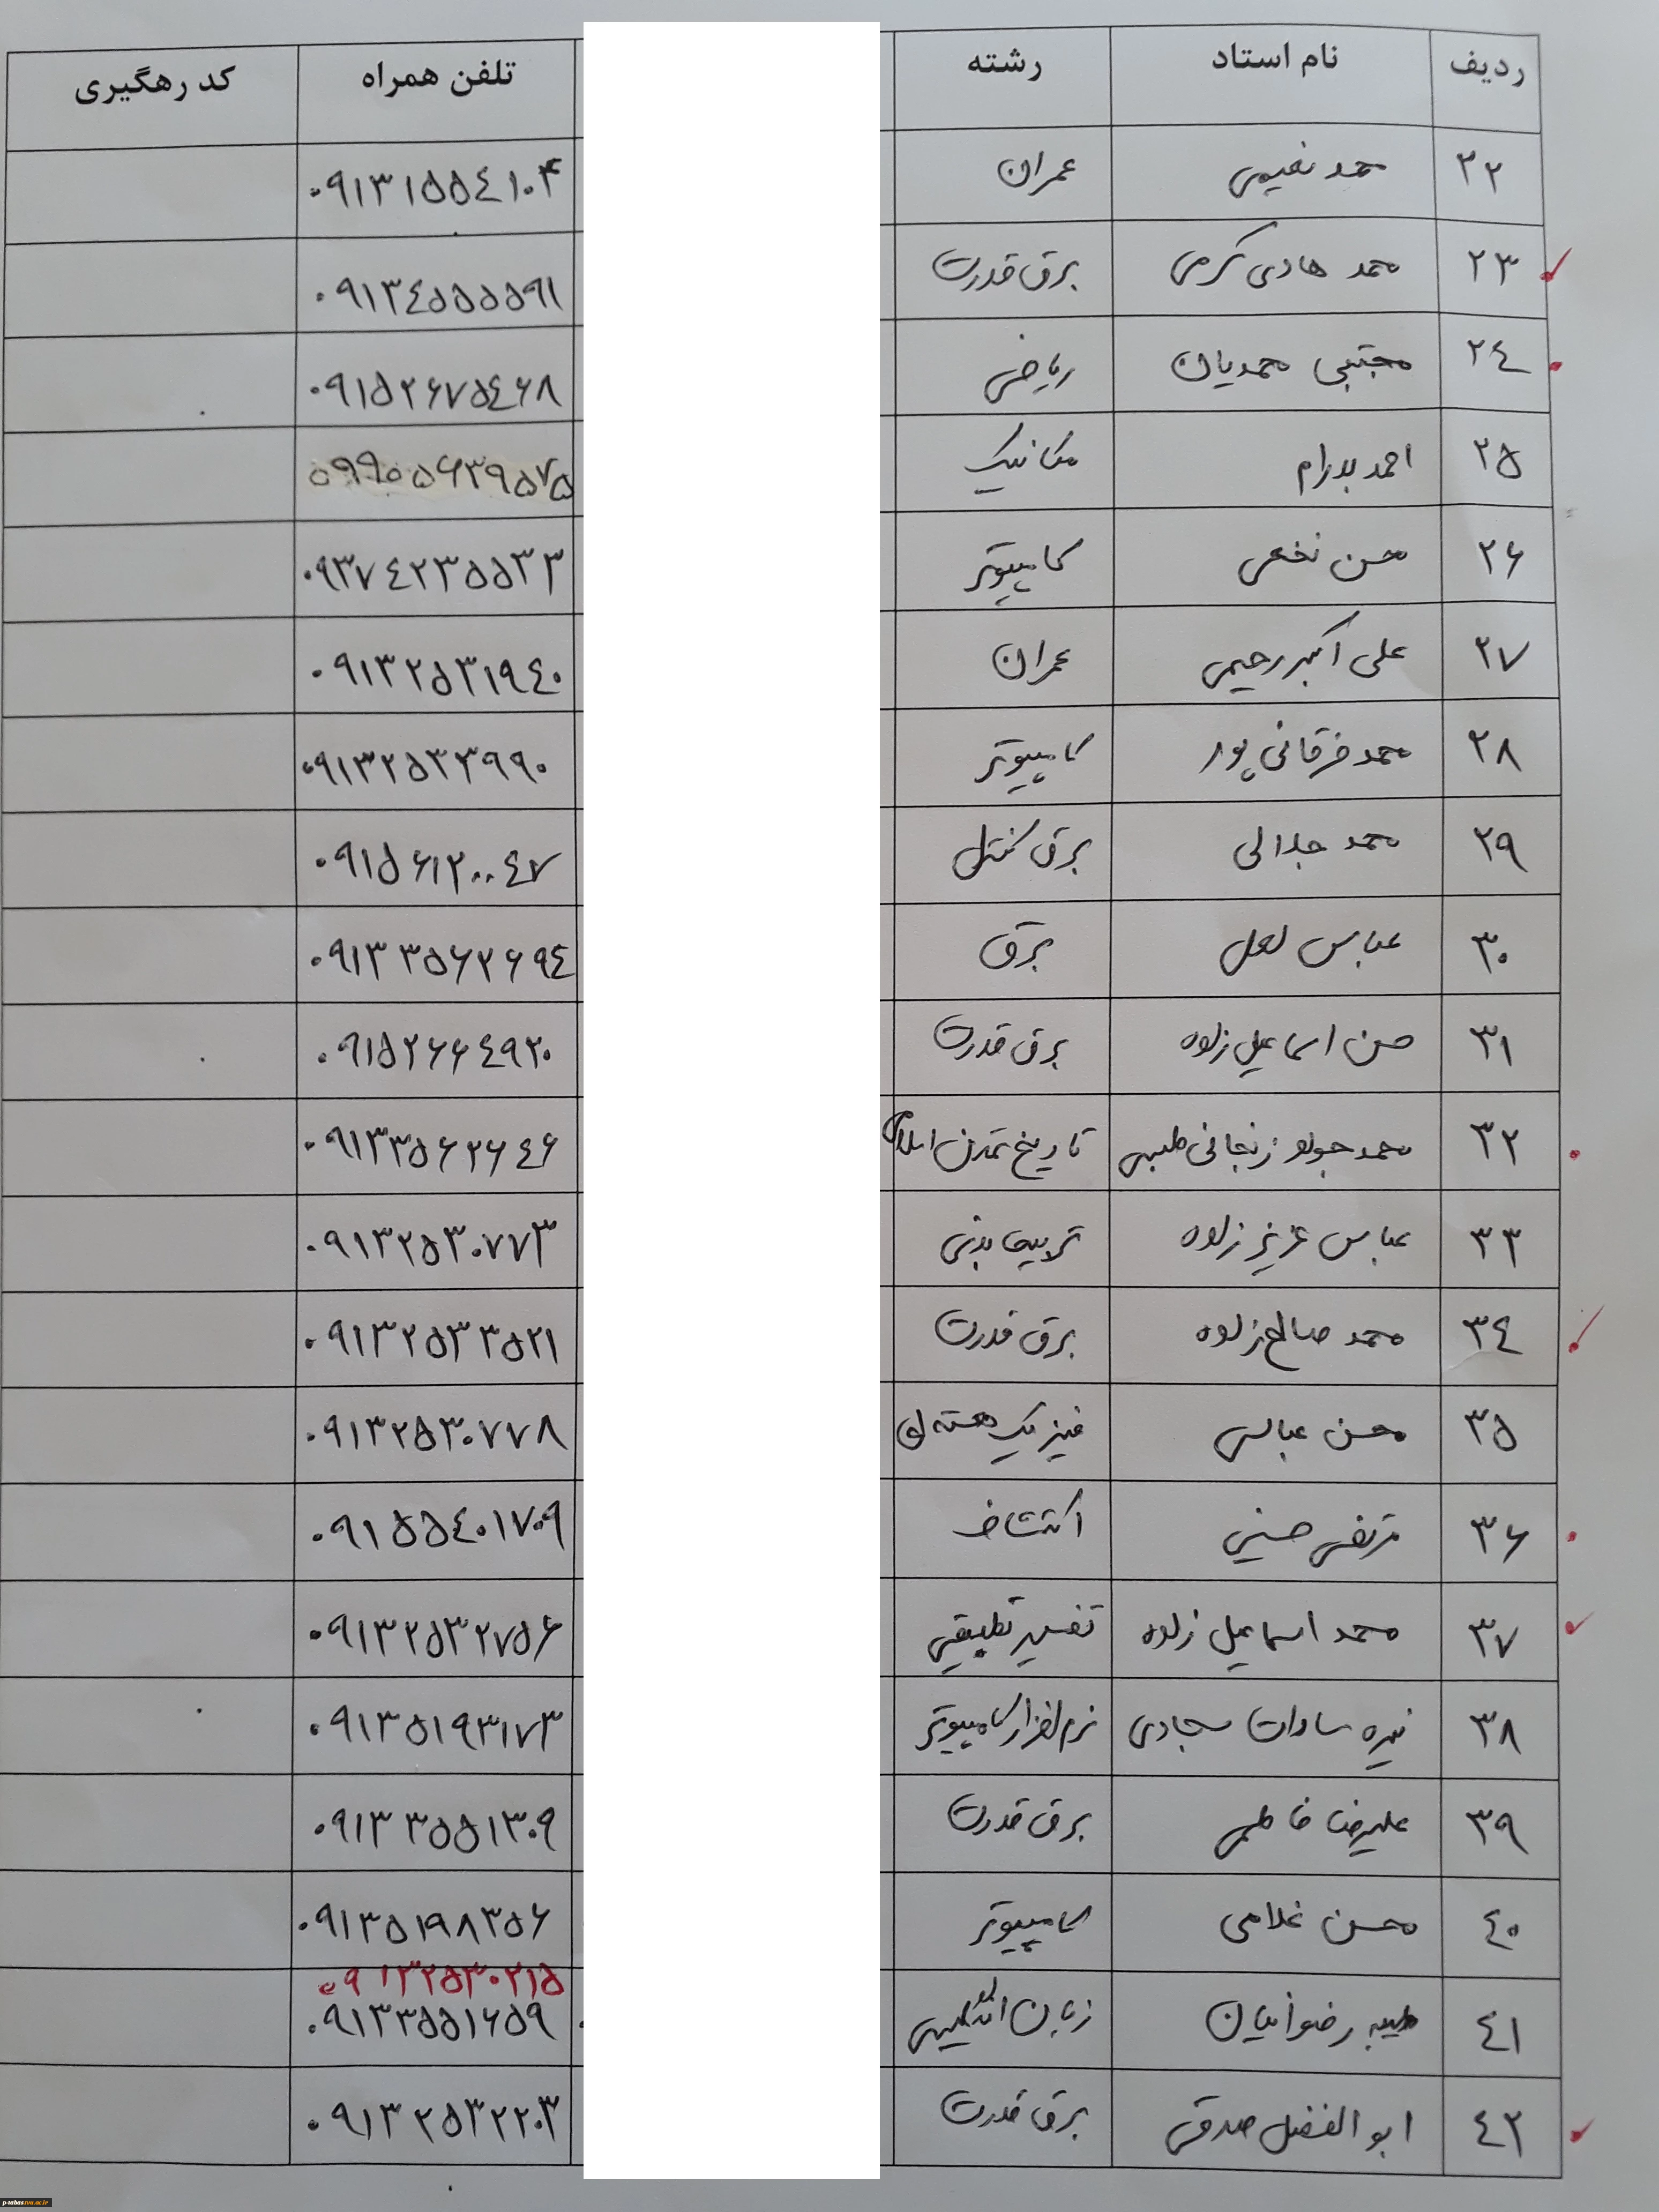 ردیف نام استاد رشته تلفن همراه کد رهگیری
۲۲ محمد نعیمی عمران ۰۹۱۳۱۵۵٤۱۰۴
۲۳ محمد هادی کرمی برق قدرت ۰۹۱۳٤۵۵۵۵۹۱
۲٤ مجتبی محمدیان ریاضی ۰۹۱۵۲۶۷۵٤۶۸
۲۵ احمد پدرام مکانیک ۰۹۹۰۵۶۳۹۵۷۵
۲۶ محسن نخعی کامپیوتر ۰۹۳۷٤۲۳۵۵۳۳
۲۷ علی اکبر رحیمی عمران ۰۹۱۳۲۵۳۱۹٤۰
۲۸ محمد فرقانی پور کامپیوتر ۰۹۱۳۲۵۳۳۹۹۰
۲۹ محمد جلالی برق کنترل ۰۹۱۵۶۱۲۰۰٤۷
۳۰ عباس لعل برق ۰۹۱۳۳۵۶۲۶۹٤
۳۱ حسن اسماعیل زاده برق قدرت ۰۹۱۵۲۶۶٤۹۲۰
۳۲ محمد جواد زنجانی طبسی تاریخ تمدن اسلامی ۰۹۱۳۳۵۶۲۶٤۶
۳۳ عباس عزیز زاده تربیت بدنی ۰۹۱۳۲۵۳۰۷۷۳
۳٤ محمد صالح زاده برق قدرت ۰۹۱۳۲۵۳۳۵۲۱
۳۵ محسن عباسی فیزیک هسته ای ۰۹۱۳۲۵۳۰۷۷۸
۳۶ مرتضی حسینی اکتشاف ۰۹۱۵۵٤۰۱۷۰۹
۳۷ محمد اسماعیل زاده تفسیر تطبیقی ۰۹۱۳۲۵۳۲۷۵۶
۳۸ نیره سادات سجادی نرم افزار کامپیوتر ۰۹۱۳۵۱۹۳۱۷۳
۳۹ علیرضا فاطمی برق قدرت ۰۹۱۳۳۵۵۱۳۰۹
٤۰ محسن غلامی کامپیوتر ۰۹۱۳۵۱۹۸۳۵۶
۰۹۱۳۲۵۳۰۲۱۵
٤۱ طیبه رضوانیان زبان انگلیسی ۰۹۱۳۳۵۵۱۶۵۹
٤۲ ابوالفضل صدقی برق قدرت ۰۹۱۳۲۵۳۲۲۰۳
p-tabas.tvu.ac.ir